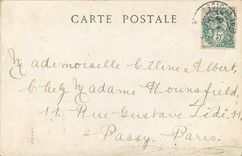 CARTE POSTALE
Mademoiselle Céline Albert,
Chez Madame Hounsfield,
11. Rue Gustave
Passy. Paris.